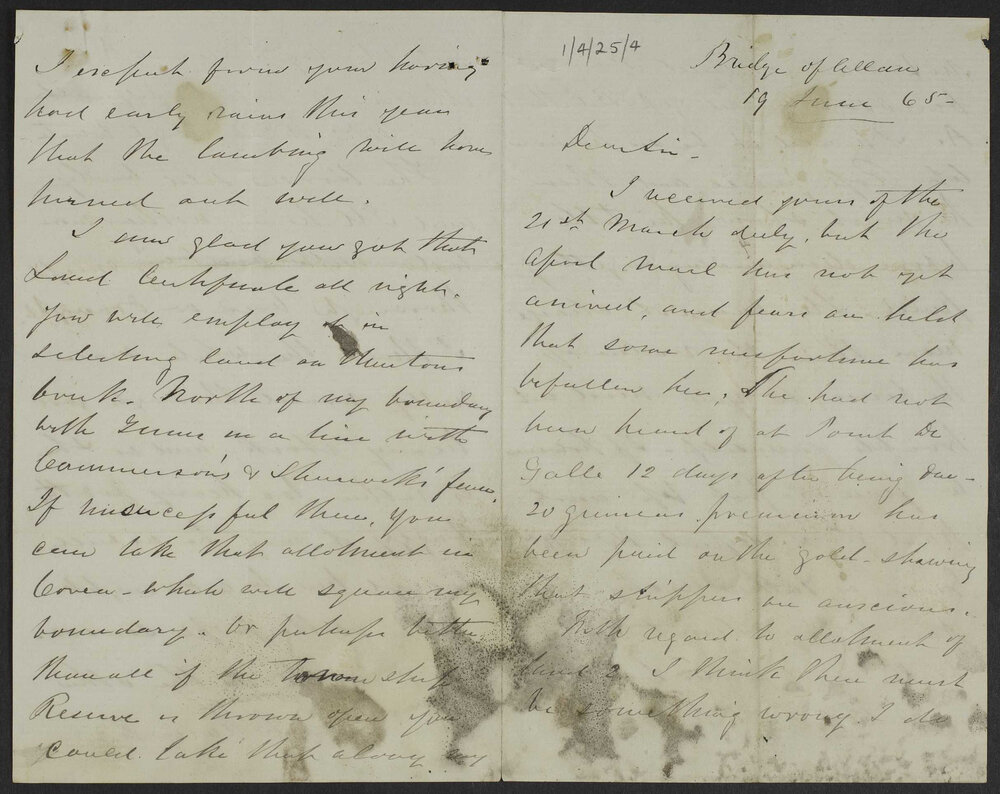 1/4/25/4
Bridge of Allan
19 June 65-
Dear Sir-
I received yours of the
21st March duly, but the
April Mail has not yet
arrived, and fears are held
that some misfortune has
befallen her, She had not
been heard of at Point De
Galle 12 days after being due-
20 guineas premium has
been paid on the gold - shewing
that shippers are anxious.
With regard to allotment of
land 2. I think there must
be something wrong I do
I expect from your having
had early rains this year
that the lambing will have
turned out well.
I am glad you got that
Land Certificate all right.
You will employ in
selecting land on
North of my boundary
with in a line with
& fence.
If unsuccessful there, you
can take that allotment in
which will square my
boundary. Or perhaps better
than all if the Township
Reserve is thrown open you
could take that along my